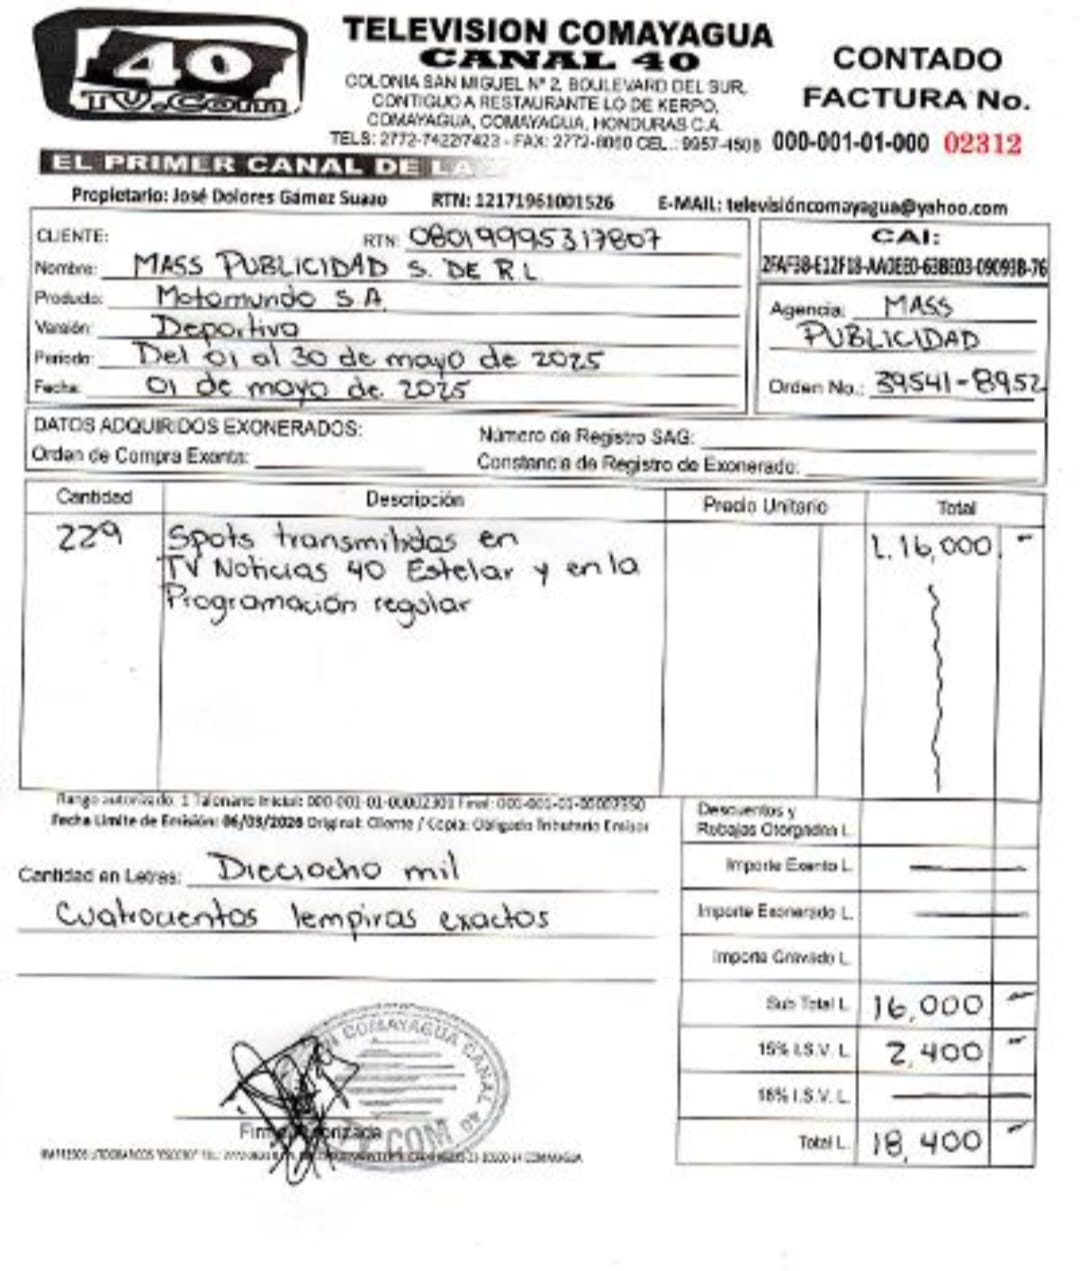 40
TV.Com
TELEVISION COMAYAGUA
CANAL 40
COLONIA SAN MIGUEL Nº 2, BOULEVARD DEL SUR,
CONTIGUO A RESTAURANTE LO DE KERPO,
COMAYAGUA, COMAYAGUA, HONDURAS C.A.
TELS: 2772-7422/7423 - FAX: 2772-8050 CEL.: 9957-4508
CONTADO
FACTURA No.
000-001-01-000 02312
EL PRIMER CANAL DE LA
Propietario: José Dolores Gámez Suazo RTN: 12171961001526 E-MAIL: televisióncomayagua@yahoo.com
CLIENTE: RTN: 08019995317807
Nombre: MASS PUBLICIDAD S. DE R.L
Producto: Motomundo S A
Versión: Deportiva
Periodo: Del 01 al 30 de mayo de 2025
Fecha: 01 de mayo de 2025
CAI:
2FAF38-E12F18-AA0EE0-63BE03-09093B-76
Agencia: MASS
PUBLICIDAD
Orden No.: 39541-8952
DATOS ADQUIRIDOS EXONERADOS:
Orden de Compra Exenta:
Número de Registro SAG:
Constancia de Registro de Exonerado:
Cantidad Descripción Precio Unitario Total
229 Spots transmitidos en L.16,000 -
TV Noticias 40 Estelar y en la
Programación regular
Rango autorizado: 1 Talonario Inicial: 000-001-01-00002301 Final: 000-001-01-00002350
Fecha Límite de Emisión: 06/03/2026 Original: Cliente / Copia: Obligado Tributario Emisor
Cantidad en Letras: Dieciocho mil
Cuatrocientos lempiras exactos
Descuentos y
Rebajas Otorgadas L.
Importe Exento L.
Importe Exonerado L.
Importe Gravado L.
Sub Total L. 16,000 -
15% I.S.V. L. 2,400 -
18% I.S.V. L.
Total L. 18,400 -
COMAYAGUA CANAL 40
.COM
Firma Autorizada